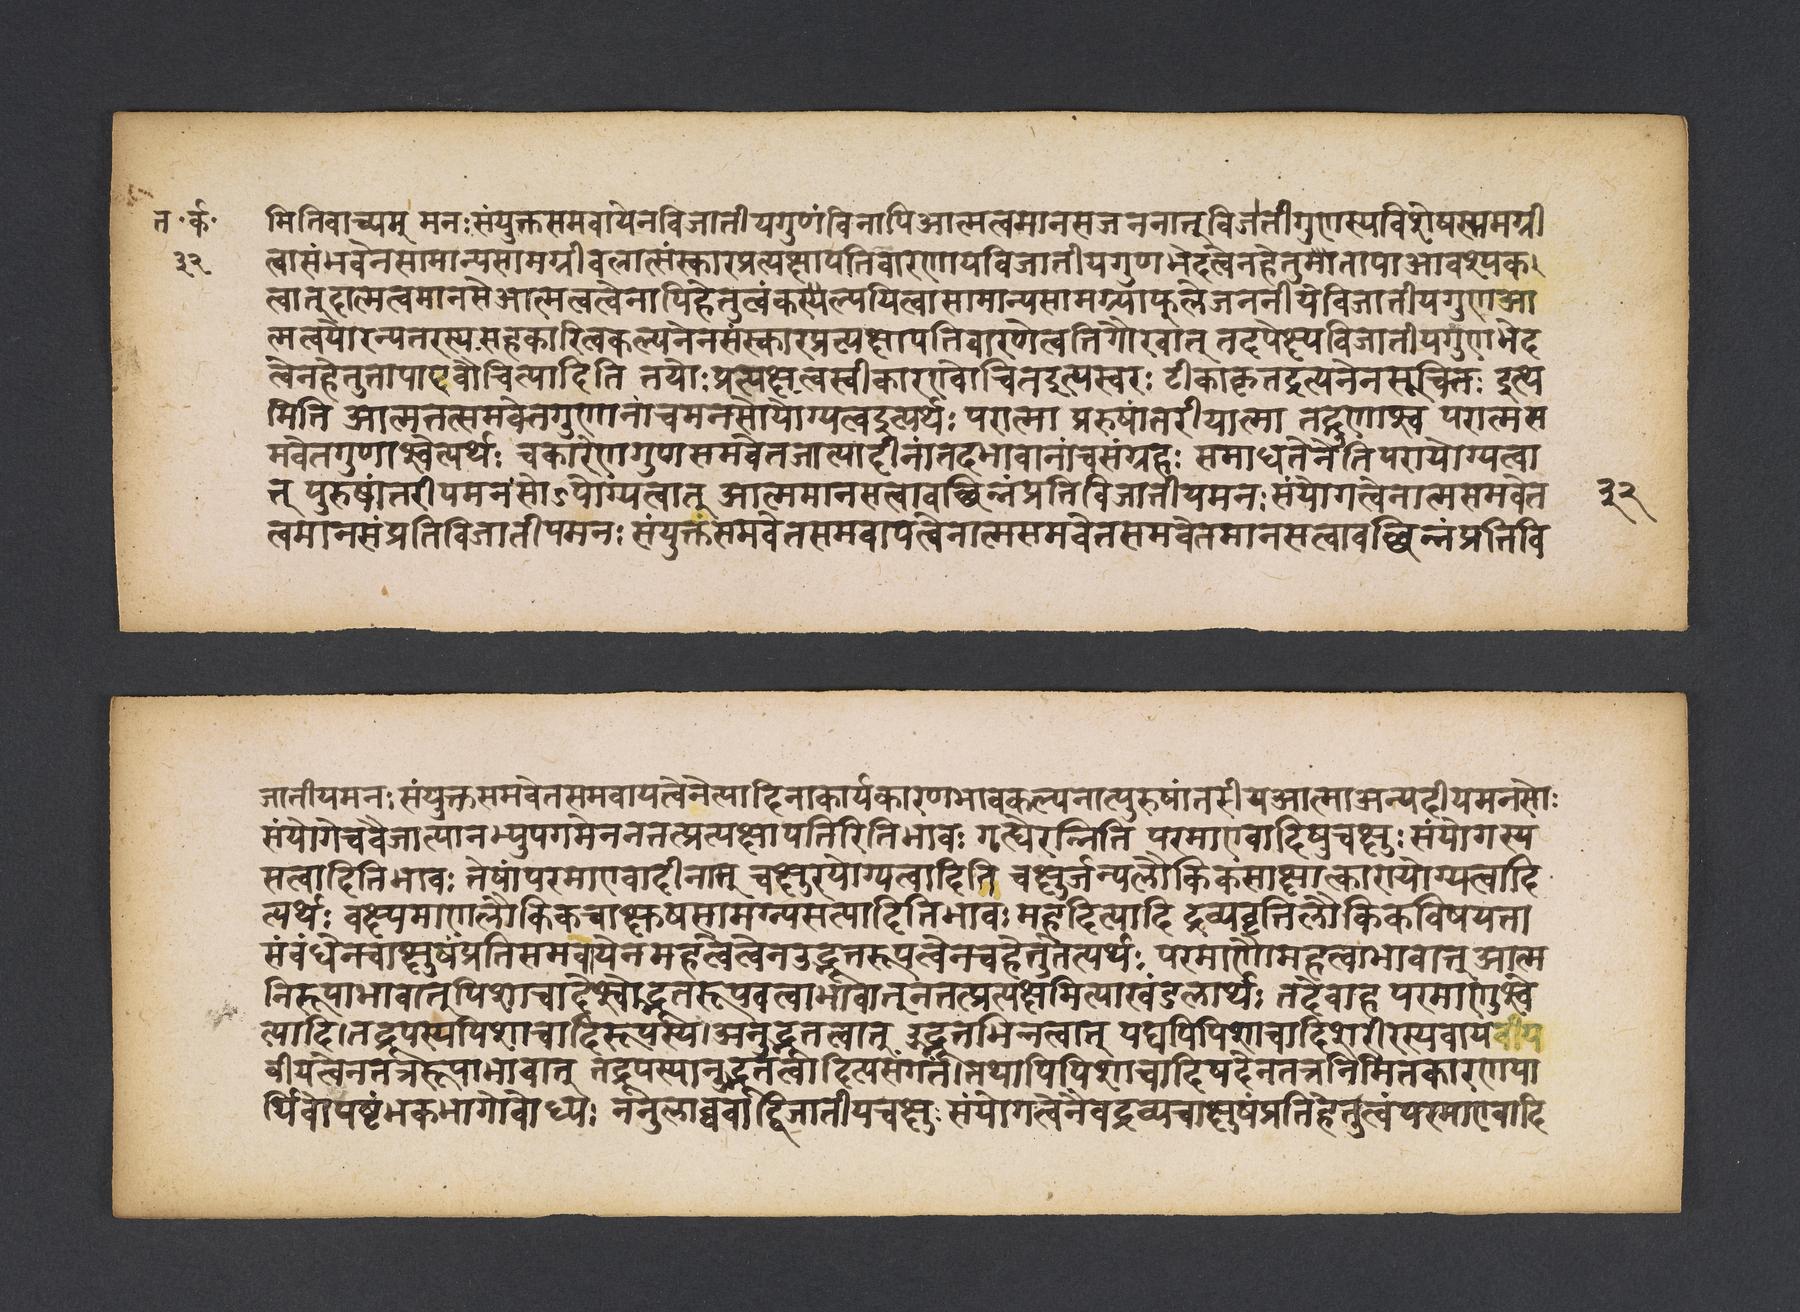 त॰ र्क॰
३२
मितिवाच्यम् मनःसंयुक्तसमवायेनविजातीयगुणंविनापिआत्मत्वमानसजननात् विजातीगुणस्यविशेषसामग्री
त्वासंभवेनसामान्यसामग्रीबलात्संस्कारप्रत्यक्षापत्तिवारणायविजातीयगुणभेदत्वेनहेतुमातापाआवश्यक।
त्वात् दात्मत्वमानसेआत्मत्वत्वेनापिहेतुत्वंकस्पेल्पयित्वासामान्यसामग्र्याफलेजननीयेविजातीयगुणआ
त्मत्वयोरन्यतरस्य सहकारित्वकल्पनेनसंस्कारप्रत्यक्षापत्तिवारणेत्वतिगौरवात् तदपेक्ष्यविजातीयगुणभेद
त्वेनहेतुतापाएवौचित्यादिति तयोः प्रत्यक्षत्वस्वीकारएवोचितइत्यस्वरः टीकाकृतइत्यनेनसूचितः इत्थ
मिति आत्मतत्समवेतगुणानांचमनसोयोग्यत्वइत्यर्थः परात्मा पुरुषांतरीयात्मा तद्गुणाश्च परात्मस
मवेतगुणाश्चेत्यर्थः चकारेणगुणसमवेतजात्यादीनांतदभावानांचसंग्रहः समाधत्तेनेति परायोग्यत्वा
त् पुरुषांतरीयमनसोऽयोग्यत्वात् आत्ममानसत्वावच्छिन्नंप्रतिविजातीयमनःसंयोगत्वेनात्मसमवेत
त्वमानसंप्रतिविजातीयमनः संयुक्तसमवेतसमवायत्वेनात्मसमवेतसमवेतमानसत्वावच्छिन्नंप्रतिवि
३२
जातीयमनःसंयुक्तसमवेतसमवायत्वेनेत्यादिनाकार्यकारणभावकल्पनात्पुरुषांतरीयआत्माअन्यदीयमनसोः
संयोगेचवैजात्यानभ्युपगमेननतत्प्रत्यक्षापत्तिरितिभावः गृह्येरन्निति परमाण्वादिषुचक्षुः संयोगस्य
सत्वादितिभावः तेषांपरमाण्वादीनाम् चक्षुरयोग्यत्वादिति चक्षुर्जन्यलौकिकसाक्षात्कारायोग्यत्वादि
त्यर्थः वक्ष्यमाणलौकिकचाक्षुषसामग्र्यसत्वादितिभावः महदित्यादि द्रव्यवृत्तिलौकिकविषयता
संबंधेनचाक्षुषंप्रतिसमवायेनमहत्वत्वेनउद्भूतरूपत्वेनचहेतुतेत्यर्थः परमाणौमहत्वाभावात् आत्म
निरूपाभावात्पिशाचादेश्चोद्भूतरूपवत्वाभावात्नतत्प्रत्यक्षमित्याखंडलार्थः तदेवाह परमाणुश्चे
त्यादि।तद्रूपस्यपिशाचादिरूपस्य।अनुद्भूतत्वात् उद्भूतभिन्नत्वात् यद्यपिपिशाचादिशरीरस्यवायवीय
वीयत्वेनतत्ररूपाभावात् तद्रूपस्यानुद्भूतत्वादित्यसंगतं।तथापिपिशाचादिपदेनतत्रनिमित्तकारणपा
र्थिवोपष्टंभकभागोबोध्यः ननुलाघवाद्विजातीयचक्षुः संयोगत्वेनैवद्रव्यचाक्षुषंप्रतिहेतुत्वंपरमाण्वादि